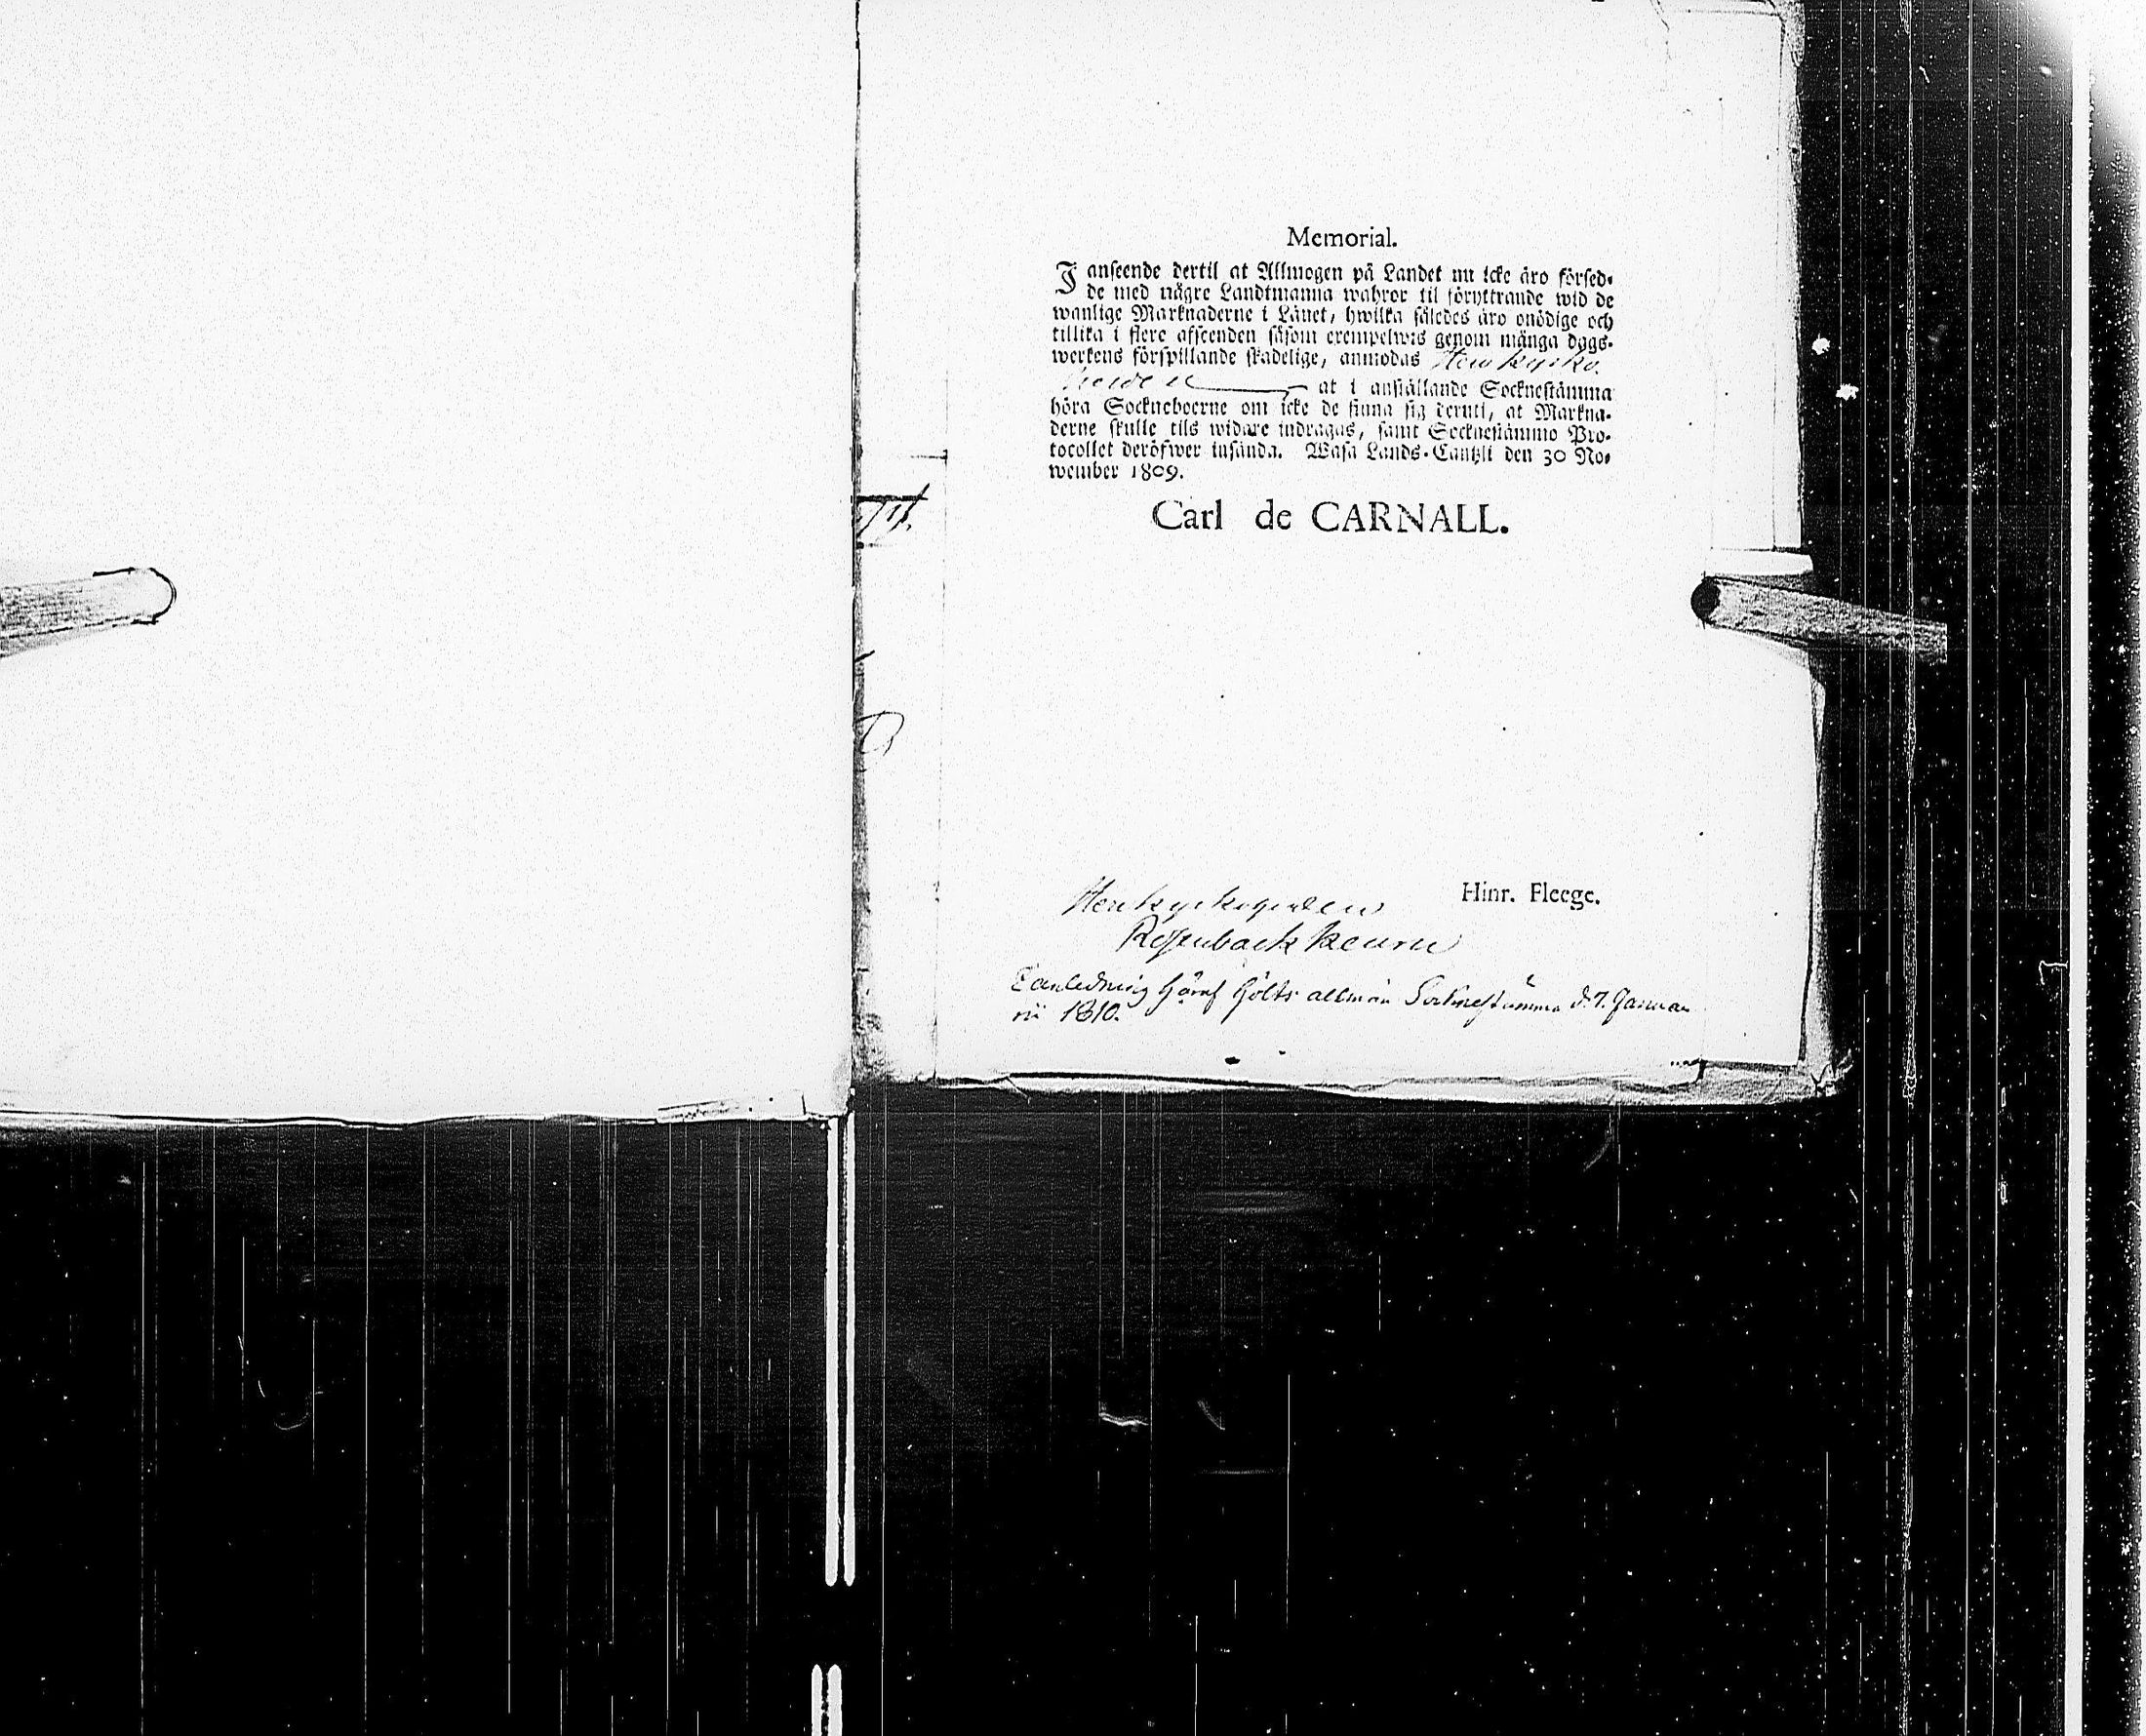 Memorial.
I anseende dertil at Allmogen på Landet nu icke äro försed-
de med någre Landtmanna wahror til föryttrande wid de
wanlige Marknaderne i Länet, hwilka således äro onödige och
tillika i flere afseenden såsom exempelwis genom många dags-
werkens förspillande skadelige, anmodas Herr Kyrko
herden at i anställande Socknestämma
höra Sockneboerne om icke de finna sig deruti, at Markna-
derne skulle tils widare indragas, samt Sockenstämmo Pro-
tocollet deröfwer insända. Wasa Lands-Cantzli den 30 No-
wember 1809.
Carl de CARNALL.
Hinr. Fleege.
Herr Kyrkoherden
Rosenback Kaurn
I anledning häraf hölts allmän Socknestämma d. 7. Janua
rii 1810.